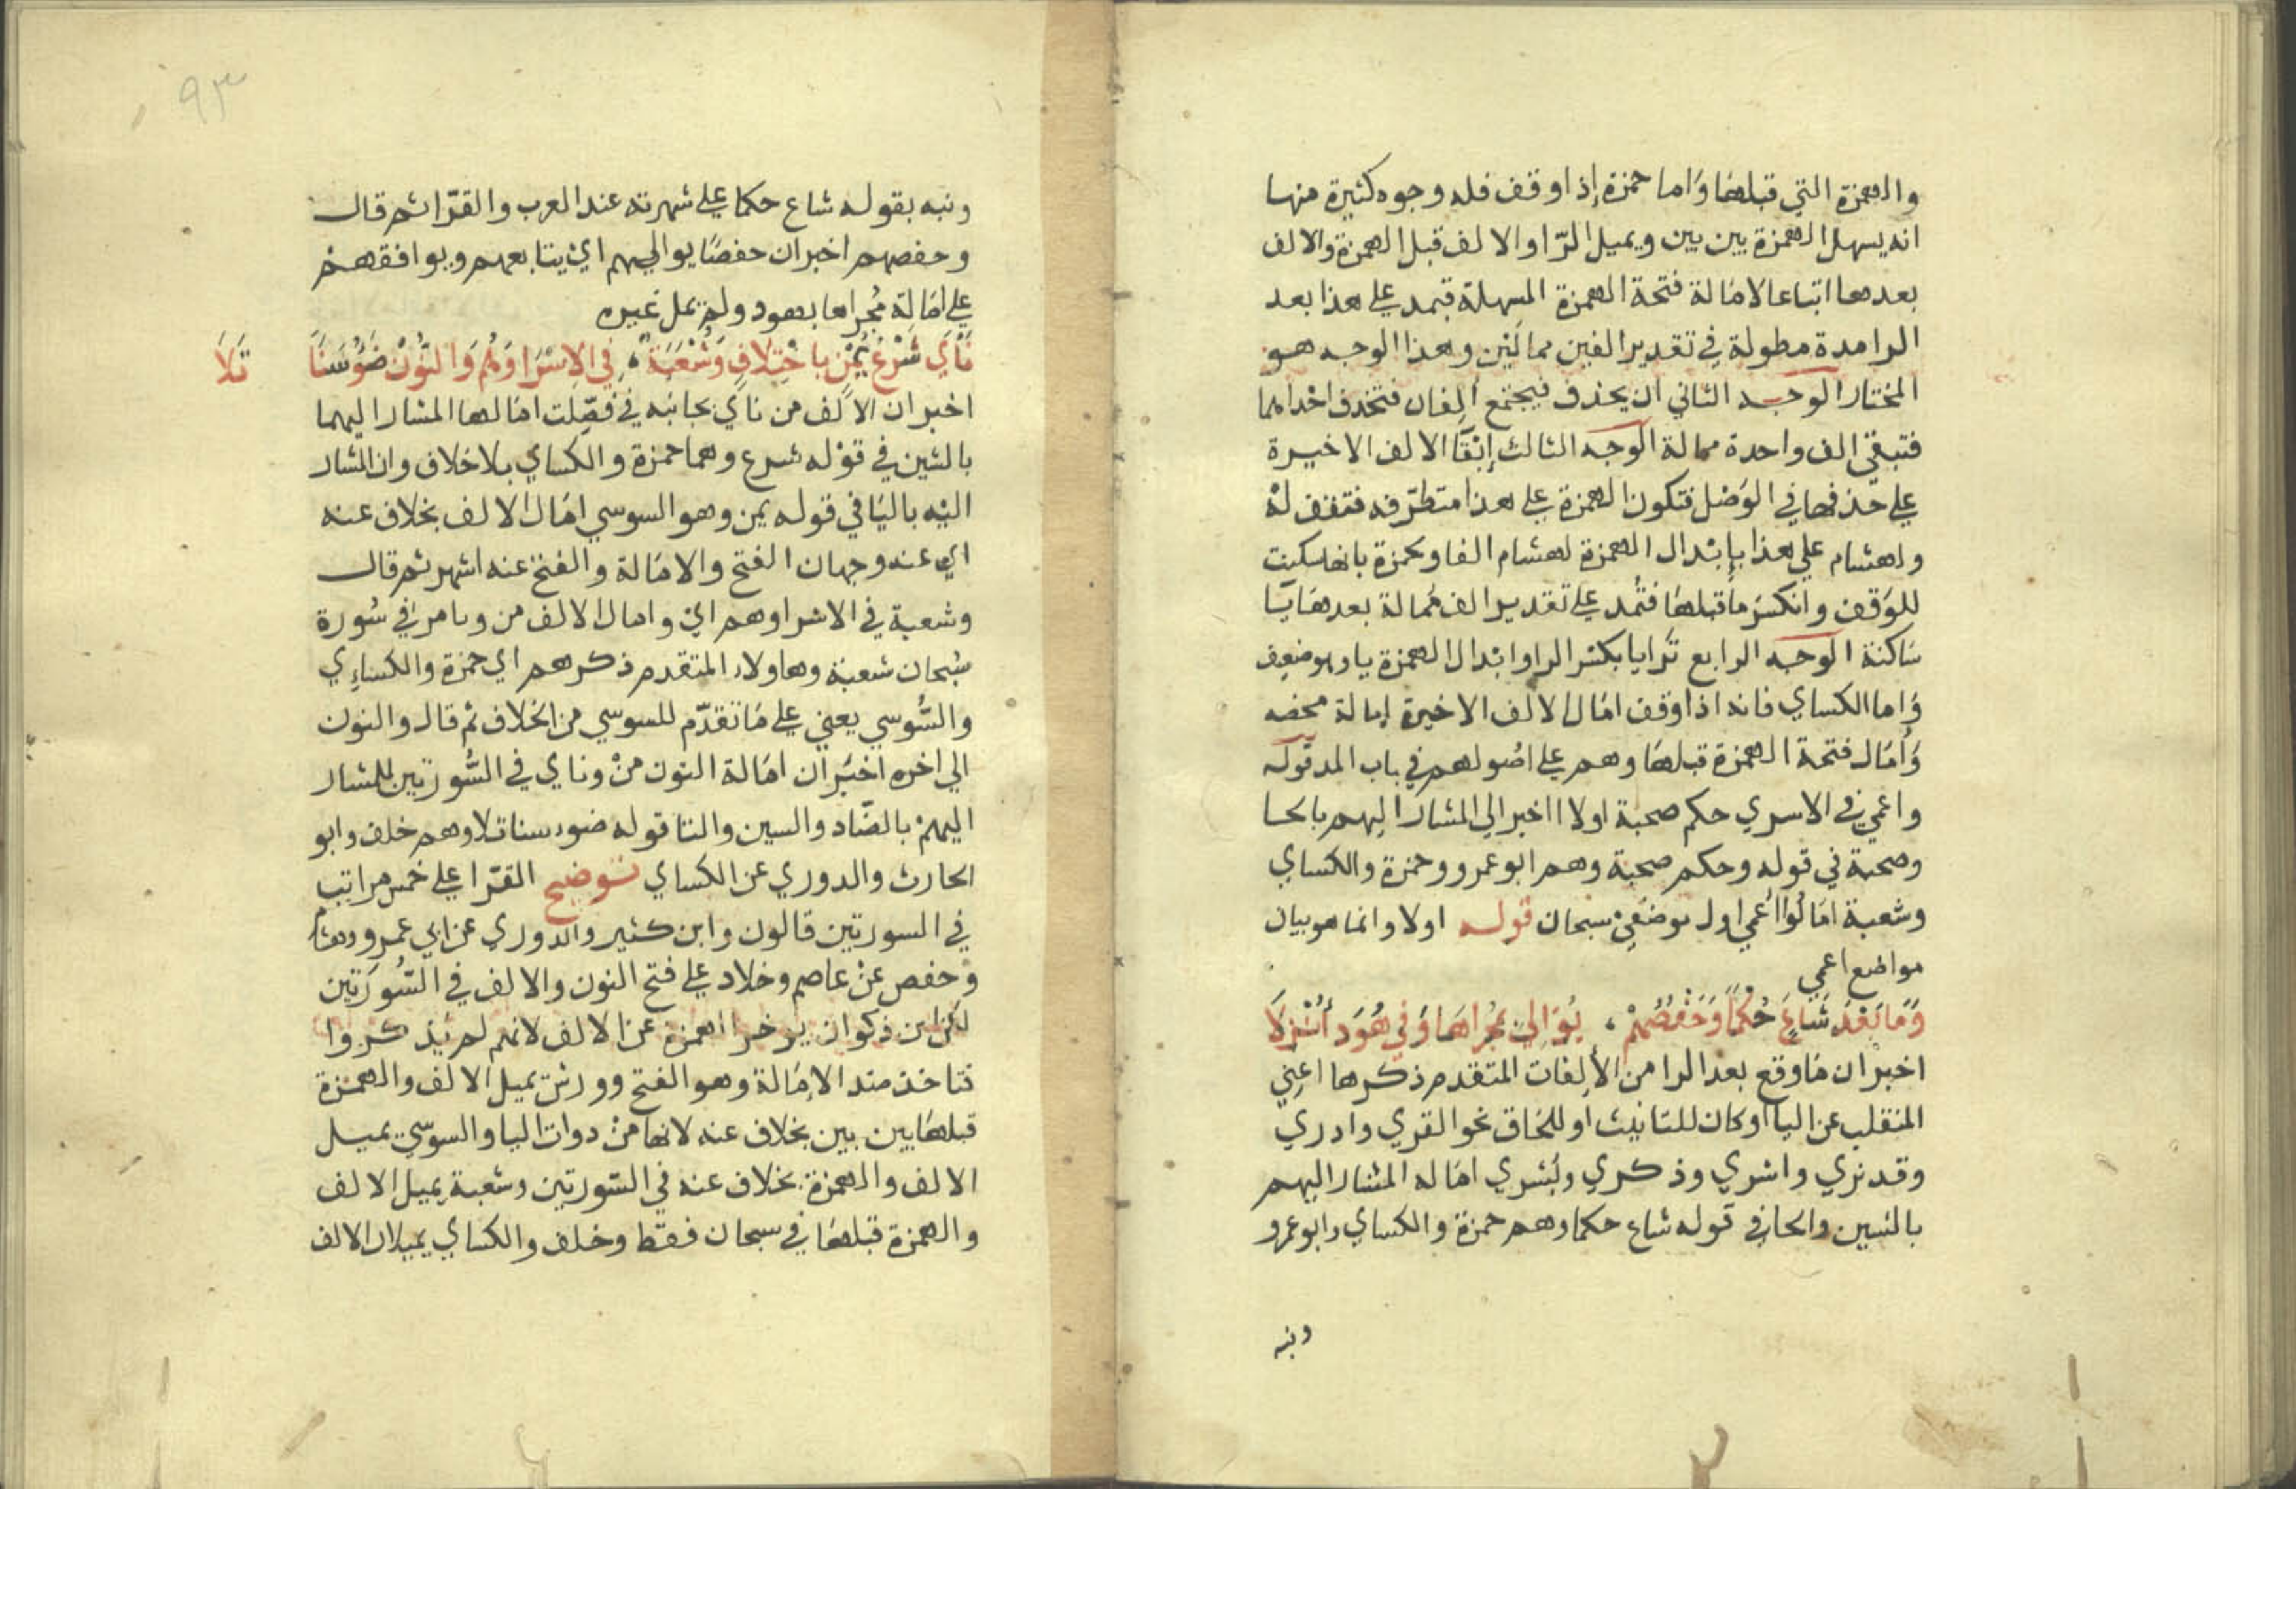 والهمزة التي قبلها وَاما حمزة إذا وقف فله وجوه كثيرة منها
انه يسهل الهمزة بين بين ويميل الرّا والالف قبل الهمزة والالف
بعدها اتباعا لامَالة فتحة الهمزة المسهلة فيمد على هذا بعد
الرا مدة مطولة في تقدير الفين ممالَتين وهذا الوجه هو
المختار الوجه الثاني ان يحذف فيجتمع ألِفان فتحذف احْداهما
فتبقى الف واحدة ممالة الوجه الثالث إبْقَا الالف الاخيرة
على حَذفها في الوَصْل فتكون الهمزة على هذا متطرّفه فتقف لهْ
ولهشام على هذا بإبْدال الهمزة لهشام الفا ولحمزة بانها سكنت
للوَقف وانكسَر مَا قبلهَا فتُمد على تقدير الف مُمالة بعدهَا يَا
سَاكنة الوجه الرابع تَرايا بكسْر الرا وابْدال الهمزة يا وهو ضعِيف
وَاما الكساي فانه اذا وقف امَال الالف الاخيرة إمالة محضه
وَأمَال فتحة الهمزة قبلهَا وهم على اصُولهم في باب المد قوله
واعمى في الاسرى حكم صحبة اولا اخبر ان المشار اليهم بالحا
وصحبة في قوله وحكم صحبة وهم ابو عمرو وحمزة والكساي
وشعبة امَالُوا أعمى اول موضعَيْ سبحان قوله اولا وانما هو بيان
مواضع اعمى
وَمَا بَعْدَ شَاعَ حُكْمًا وَحَفْصُهُمْ ، يُوَالِي بمُجراهَا وَفي هُودَ أُنْزِلَا
اخبر ان مَا وقع بعد الرا من الألِفات المتقدم ذكرها اعني
المنقلب عن اليا او كان للتانيث او للالحاق نحو القرى وادري
وقد نرى واشترى وذكرى وبُشرى امَاله المشار اليهم
بالشين والحا في قوله شاع حكما وهم حمزة والكساي وابو عمرو
ونبه
٩٣
ونبه بقوله شاع حكما على شهرته عند العرب والقرّا ثم قال
وحفصهم اخبر ان حفصًا يواليهم ايْ يتابعهم ويوافقهمْ
على امَالِة مُجراها بهود ولم يمل غيره
نَأَى شَرْعُ يُمْنٍ بِاخْتِلَافٍ وَشُعْبَةٌ ، في الِاسْرَا وَهُم وَالنُّونُ ضَوْءُ سَنًا تَلَا
اخبر ان الالف من ناى بجانبه في فصِّلت امَالها المشار اليهما
بالشين في قوْله شرع وهما حمزة والكساي بلا خلاف وان المشار
اليْه باليَا في قوله يمن وهو السوسي امَال الالف بخلاف عنه
اي عنه وجهان الفتح والامَالة والفتح عنه اشهر ثم قال
وشعبة في الاسْرا وهم اي وامال الالف من ونا مرا في سُورة
سُبحان شعبة وهاولاء المتقدم ذكرهم اي حمزة والكساءِي
والسُّوسي يعني على مَا تقدّم للسوسي من الخلاف ثم قال والنون
الى اخره اخبَر ان امَالة النون منْ وناى في السُّورتين للمشار
اليهمْ بالضّاد والسين والتا قوله ضوء سنا تلا وهم خلف وابو
الحارث والدوري عن الكساي توضيح القرّا على خمس مراتب
في السورتين قالون وابن كثير والدوري عن ابي عمرو وهشام
وَحفص عنْ عاصم وخلاد على فتح النون والالف في السُّورَتين
لكن ابن ذكوان يوخر الهمزة عن الالف لانهم لم يذكروا
فتاخذ منه الامَالة وهو الفتح وورش يميل الالف والهمزة
قبلهَا بين بين بخلاف عنه لانها منْ دوات اليا والسوسي يميل
الالف والهمزة بخلاف عنه في السّورتين وشعبة يميل الالف
والهمزة قبلهَا في سبحان فقط وخلف والكساي يميلان الالف